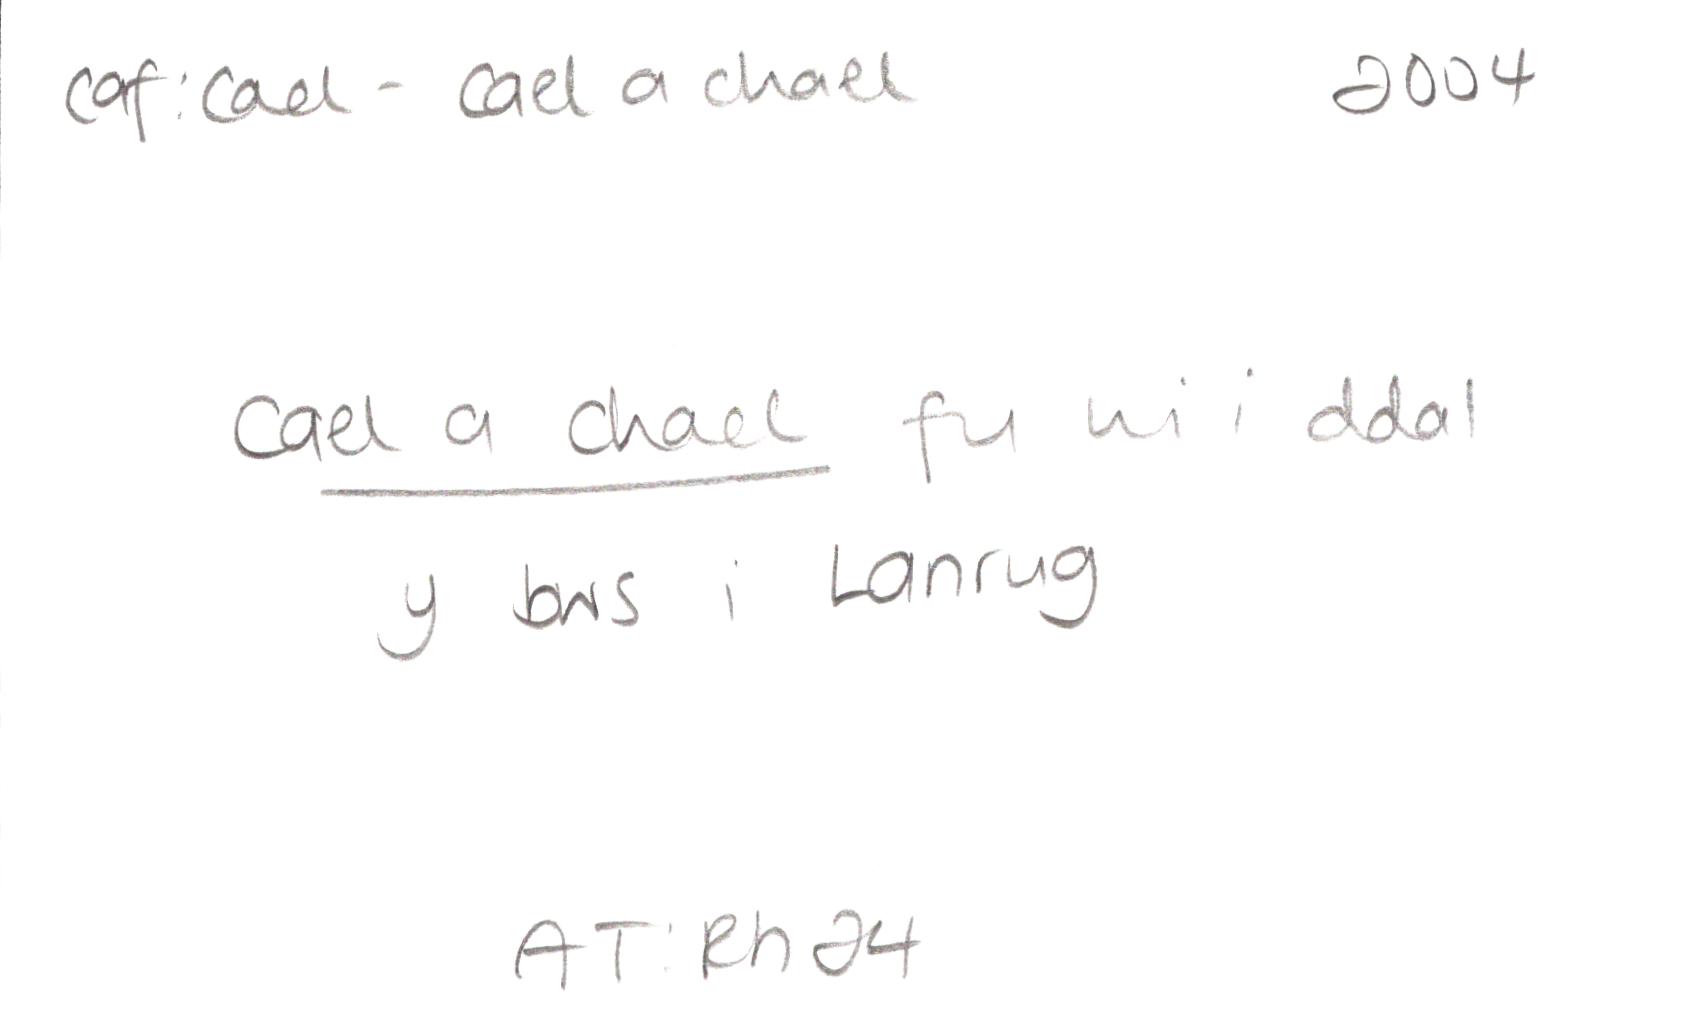 caf: cael - cael a chael 2004
Cael a chael fu hi i ddal
y bws i Lanrug
AT: Rh 24